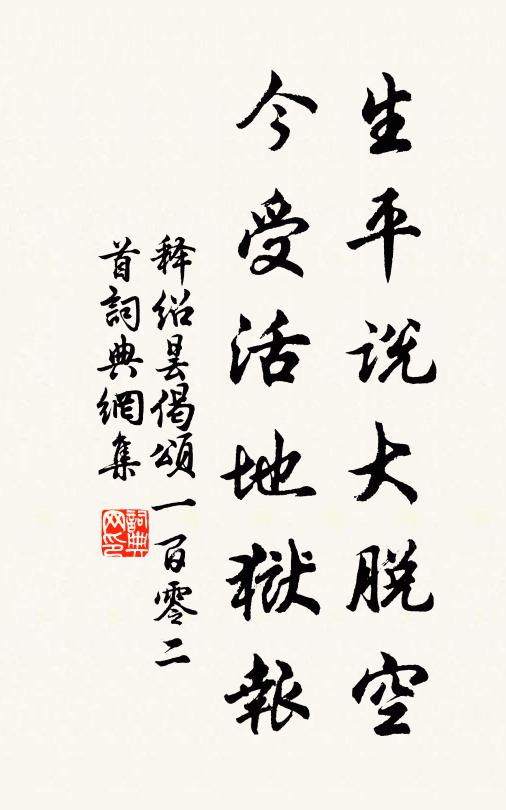 生平说大脱空
今受活地獄報
释绍昙偈頌一百零二
首詞典網集
詞典
网印